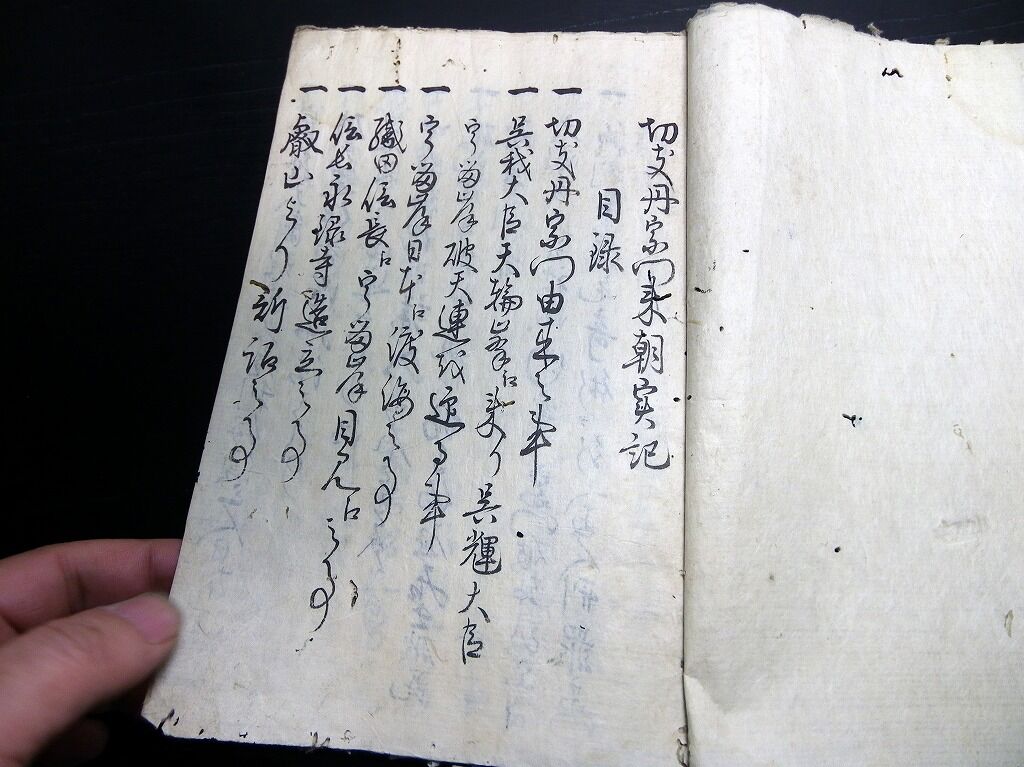 切支丹宗門来朝実記
目録
一 切支丹宗門由来之事
一 呉我大臣天輪峯江来り呉輝大臣
宇留岸破天連越迎る事
一 宇留岸日本江渡海之事
一 織田信長江宇留岸目見江之事
一 信長永録寺造立之事
一 叡山より訴詔之事